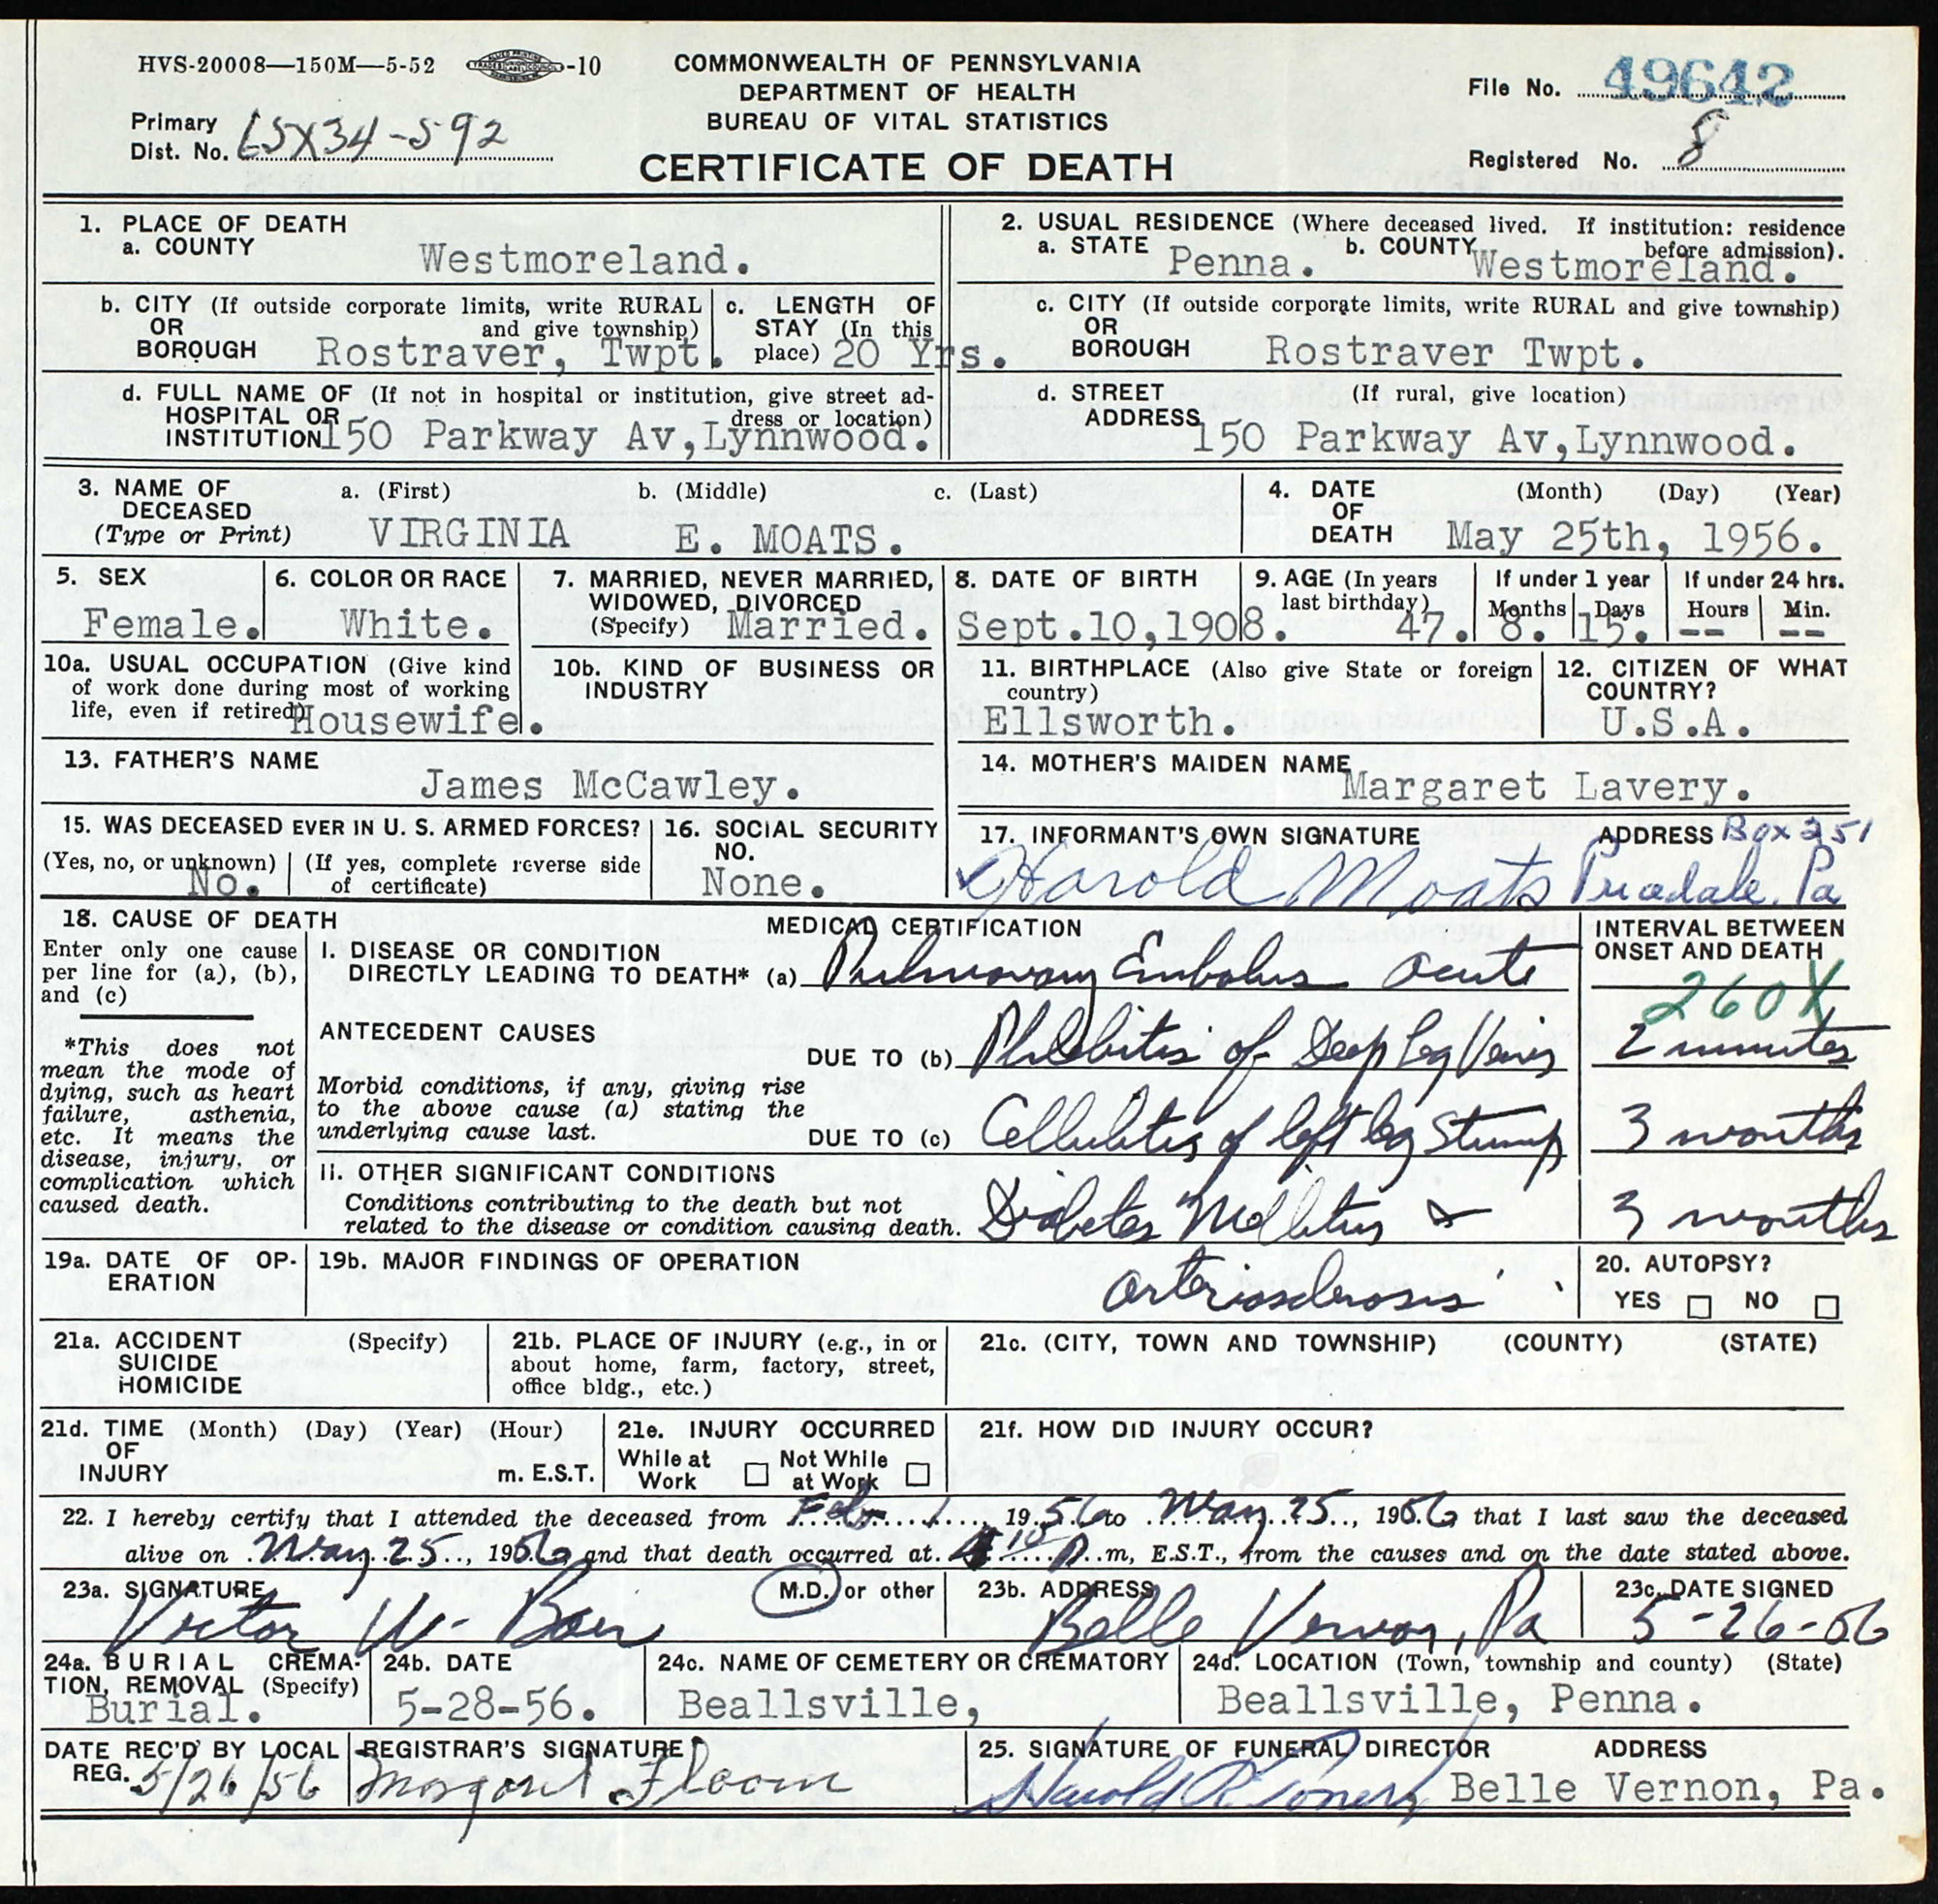 HVS-20008—150M—5-52 -10
COMMONWEALTH OF PENNSYLVANIA
DEPARTMENT OF HEALTH
BUREAU OF VITAL STATISTICS
CERTIFICATE OF DEATH
File No. 49642
Primary
Dist. No. 65X34-592
Registered No. 8
1. PLACE OF DEATH
a. COUNTY
Westmoreland.
2. USUAL RESIDENCE (Where deceased lived. If institution: residence
before admission).
a. STATE Penna. b. COUNTY Westmoreland.
b. CITY (If outside corporate limits, write RURAL
OR and give township)
BOROUGH Rostraver, Twpt.
c. LENGTH OF
STAY (In this
place) 20 Yrs.
c. CITY (If outside corporate limits, write RURAL and give township)
OR
BOROUGH Rostraver Twpt.
d. FULL NAME OF (If not in hospital or institution, give street ad-
HOSPITAL OR dress or location)
INSTITUTION 150 Parkway Av,Lynnwood.
d. STREET (If rural, give location)
ADDRESS 150 Parkway Av,Lynnwood.
3. NAME OF
DECEASED
(Type or Print)
a. (First) b. (Middle) c. (Last)
VIRGINIA E. MOATS.
4. DATE
OF
DEATH
(Month) (Day) (Year)
May 25th, 1956.
5. SEX
Female.
6. COLOR OR RACE
White.
7. MARRIED, NEVER MARRIED,
WIDOWED, DIVORCED
(Specify) Married.
8. DATE OF BIRTH
Sept.10,1908.
9. AGE (In years
last birthday)
47.
If under 1 year
Months Days
8. 15.
If under 24 hrs.
Hours Min.
-- --
10a. USUAL OCCUPATION (Give kind
of work done during most of working
life, even if retired) Housewife.
10b. KIND OF BUSINESS OR
INDUSTRY
11. BIRTHPLACE (Also give State or foreign
country)
Ellsworth.
12. CITIZEN OF WHAT
COUNTRY?
U.S.A.
13. FATHER'S NAME
James McCawley.
14. MOTHER'S MAIDEN NAME
Margaret Lavery.
15. WAS DECEASED EVER IN U. S. ARMED FORCES?
(Yes, no, or unknown) (If yes, complete reverse side
of certificate)
No.
16. SOCIAL SECURITY
NO.
None.
17. INFORMANT'S OWN SIGNATURE ADDRESS Box 251
Harold Moats Pricedale, Pa
18. CAUSE OF DEATH
Enter only one cause
per line for (a), (b),
and (c)
*This does not
mean the mode of
dying, such as heart
failure, asthenia,
etc. It means the
disease, injury, or
complication which
caused death.
MEDICAL CERTIFICATION
I. DISEASE OR CONDITION
DIRECTLY LEADING TO DEATH* (a) Pulmonary Embolus acute
ANTECEDENT CAUSES
DUE TO (b) Phlebitis of Deep leg Veins
Morbid conditions, if any, giving rise
to the above cause (a) stating the
underlying cause last.
DUE TO (c) Cellulitis of left leg Stump
II. OTHER SIGNIFICANT CONDITIONS
Conditions contributing to the death but not
related to the disease or condition causing death.
Diabetes Mellitus &
arteriosclerosis
INTERVAL BETWEEN
ONSET AND DEATH
260X
2 minutes
3 months
3 months
19a. DATE OF OP-
ERATION
19b. MAJOR FINDINGS OF OPERATION
20. AUTOPSY?
YES NO
21a. ACCIDENT (Specify)
SUICIDE
HOMICIDE
21b. PLACE OF INJURY (e.g., in or
about home, farm, factory, street,
office bldg., etc.)
21c. (CITY, TOWN AND TOWNSHIP) (COUNTY) (STATE)
21d. TIME (Month) (Day) (Year) (Hour)
OF
INJURY m. E.S.T.
21e. INJURY OCCURRED
While at Not While
Work at Work
21f. HOW DID INJURY OCCUR?
22. I hereby certify that I attended the deceased from Feb 1, 1956 to May 25, 1956 that I last saw the deceased
alive on May 25, 1956, and that death occurred at 4:10 P.m, E.S.T., from the causes and on the date stated above.
23a. SIGNATURE M.D. or other
Victor W.
23b. ADDRESS
Belle Vernon, Pa
23c. DATE SIGNED
5-26-56
24a. BURIAL CREMA-
TION, REMOVAL (Specify)
Burial.
24b. DATE
5-28-56.
24c. NAME OF CEMETERY OR CREMATORY
Beallsville,
24d. LOCATION (Town, township and county) (State)
Beallsville, Penna.
DATE REC'D BY LOCAL
REG. 5/26/56
REGISTRAR'S SIGNATURE
Margaret
25. SIGNATURE OF FUNERAL DIRECTOR ADDRESS
Harold Belle Vernon, Pa.